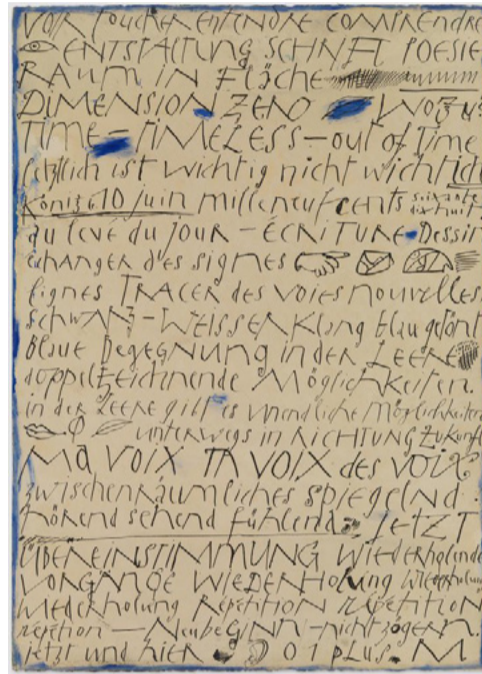 VOIR TOUCHER ENTENDRE COMPRENDRE
ENTSTALTUNG SCHRIFT POESIE
RAUM IN Fläche
DIMENSION ZERO WOZU?
TIME – TIMELESS – out of Time
letztlich ist wichtig nicht wichtig
Köniz 610 juin milleneufcents soixante dixhuit
au levé du jour – ÉCRITURE Dessin
échanger des signes
lignes TRACER des voies nouvelles
SCHWARZ – WEISSER Klang blau getönt
Blaue BEGEGNUNG in der LEERE
doppelzeichnende Möglichkeiten.
in der LEERE gibt es unendliche Möglichkeiten
unterwegs in RICHTUNG Zukunft
MA VOIX TA VOIX des VOIX
zwischenräumliches spiegelnd
hörend sehend fühlend JETZT
ÜBEREINSTIMMUNG Wiederholende
VORGÄNGE WIEDERHOLUNG Wiederholung
Wiederholung Répétition répétition
répétition – NeubeGINN – nicht zögern.
jetzt und hier 0 1 PLUS. M